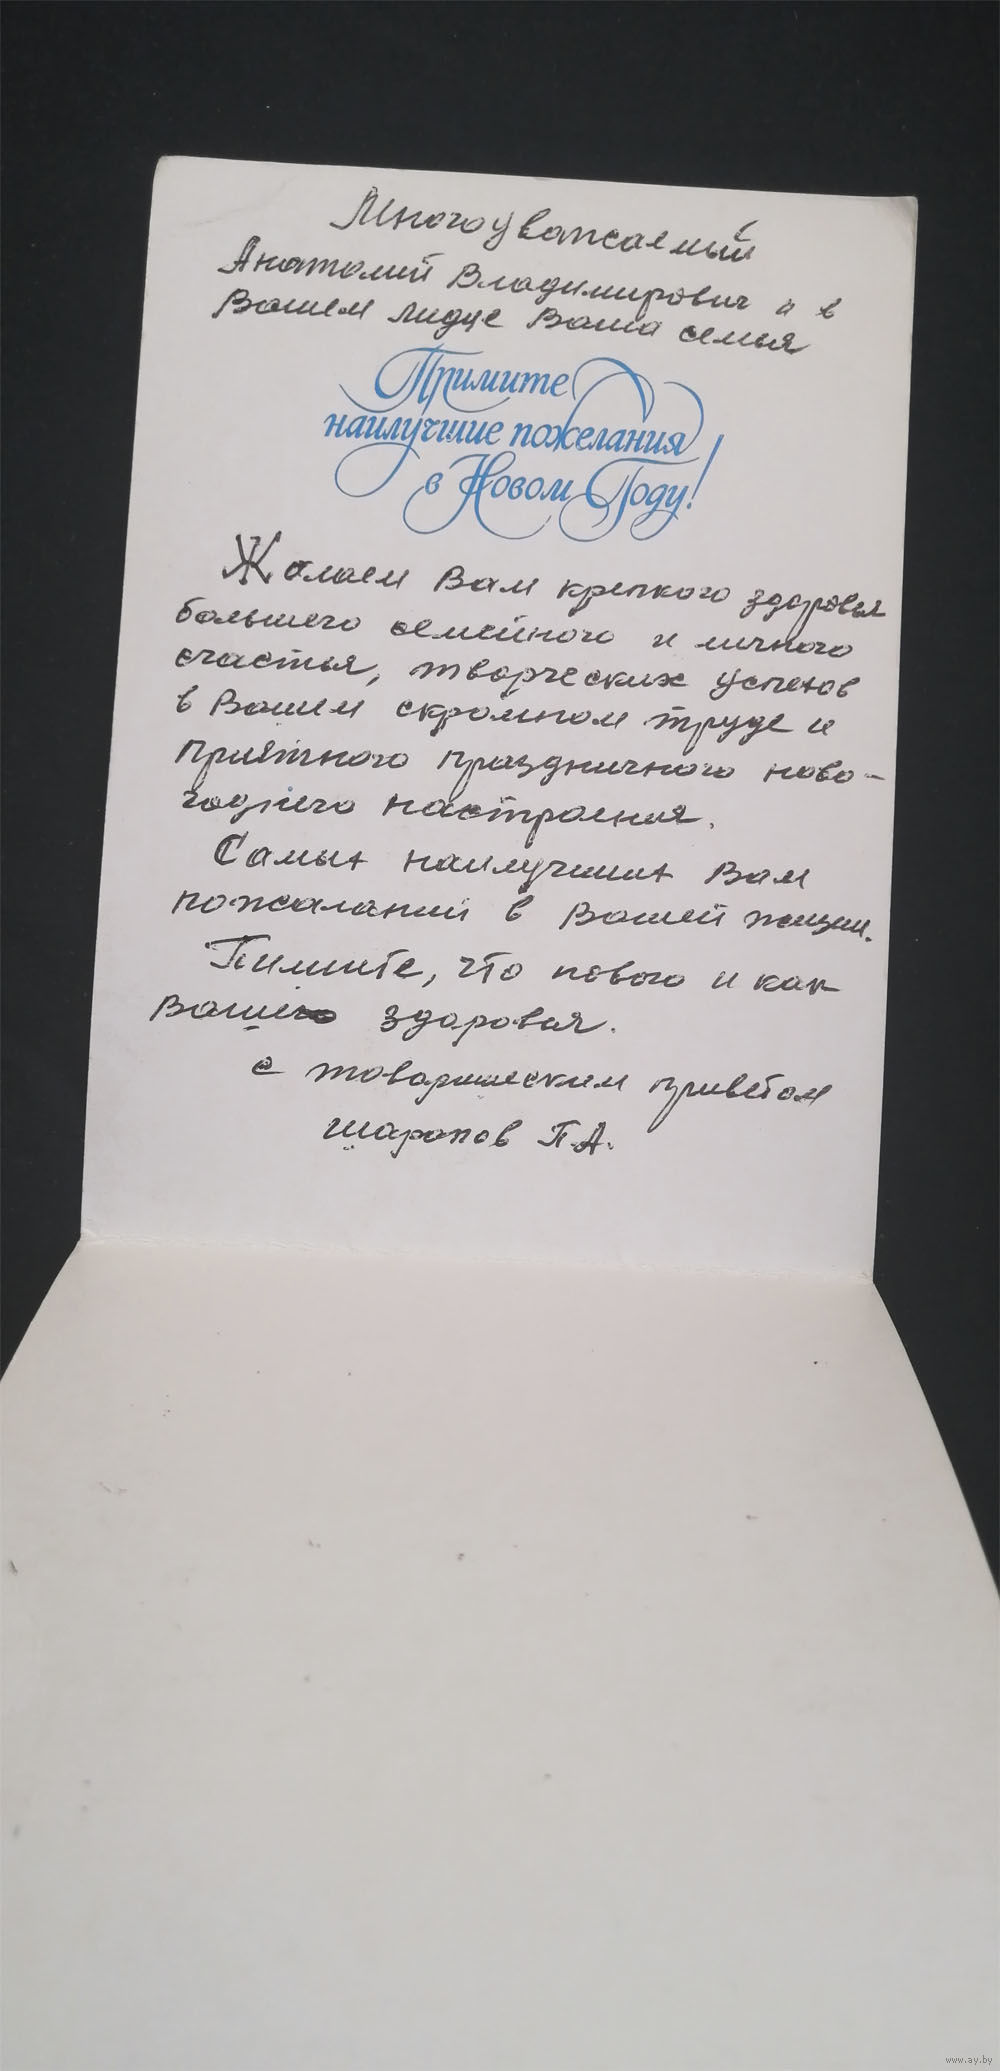 Многоуважаемый
Анатолий Владимирович и в
Вашем лидце Ваша семья
Примите
наилучшие пожелания
в Новом Году!
Желаем Вам крепкого здоровья
большего семейного и личного
счастья, творческих успехов
в Вашем скромном труде и
приятного праздничного ново-
годнего настроения.
Самых наилучших Вам
пожеланий в Вашей жизни.
Пишите, что нового и как
Ваше здоровья.
с товарищеским приветом
Шарапов П.А.
www.ay.by